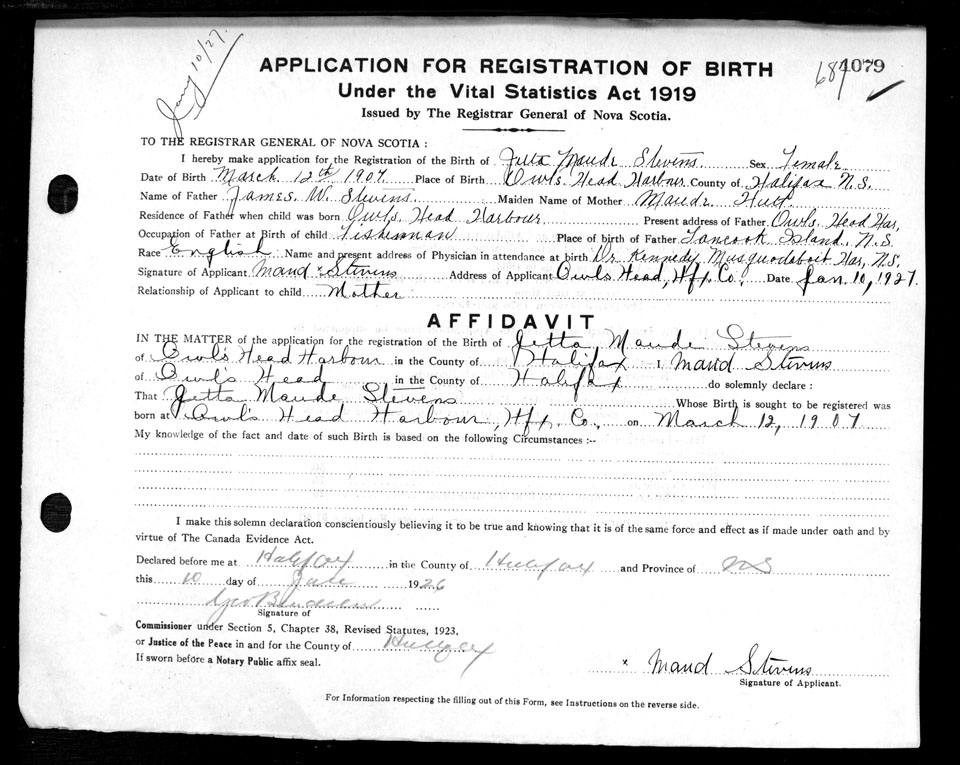 Jany 10/27.
APPLICATION FOR REGISTRATION OF BIRTH
687 1079
Under the Vital Statistics Act 1919
Issued by The Registrar General of Nova Scotia.
TO THE REGISTRAR GENERAL OF NOVA SCOTIA :
I hereby make application for the Registration of the Birth of Jetta Maude Stevens. Sex Female
Date of Birth March 12th 1907 Place of Birth Owls Head Harbour County of Halifax N.S.
Name of Father James W. Stevens. Maiden Name of Mother Maude
Residence of Father when child was born Owls Head Harbour Present address of Father Owls Head Har,
Occupation of Father at Birth of child Fisherman Place of birth of Father Tancook Island, N.S.
Race English Name and present address of Physician in attendance at birth Dr. Kennedy Musquodoboit Har, N.S.
Signature of Applicant Maud Stevens Address of Applicant Owls Head, Hfx Co., Date Jan. 10, 1927.
Relationship of Applicant to child Mother
AFFIDAVIT
IN THE MATTER of the application for the registration of the Birth of Jetta Maude Stevens
of Owl's Head Harbour in the County of Halifax I, Maud Stevens
of Owl's Head in the County of Halifax do solemnly declare :
That Jetta Maude Stevens Whose Birth is sought to be registered was
born at Owl's Head Harbour, Hfx. Co., on March 12, 1907
My knowledge of the fact and date of such Birth is based on the following Circumstances :--
I make this solemn declaration conscientiously believing it to be true and knowing that it is of the same force and effect as if made under oath and by
virtue of The Canada Evidence Act.
Declared before me at Halifax in the County of Halifax and Province of NS
this 10 day of 1926
Signature of
Commissioner under Section 5, Chapter 38, Revised Statutes, 1923,
or Justice of the Peace in and for the County of Halifax
If sworn before a Notary Public affix seal.
x Maud Stevens
Signature of Applicant.
For Information respecting the filling out of this Form, see Instructions on the reverse side.